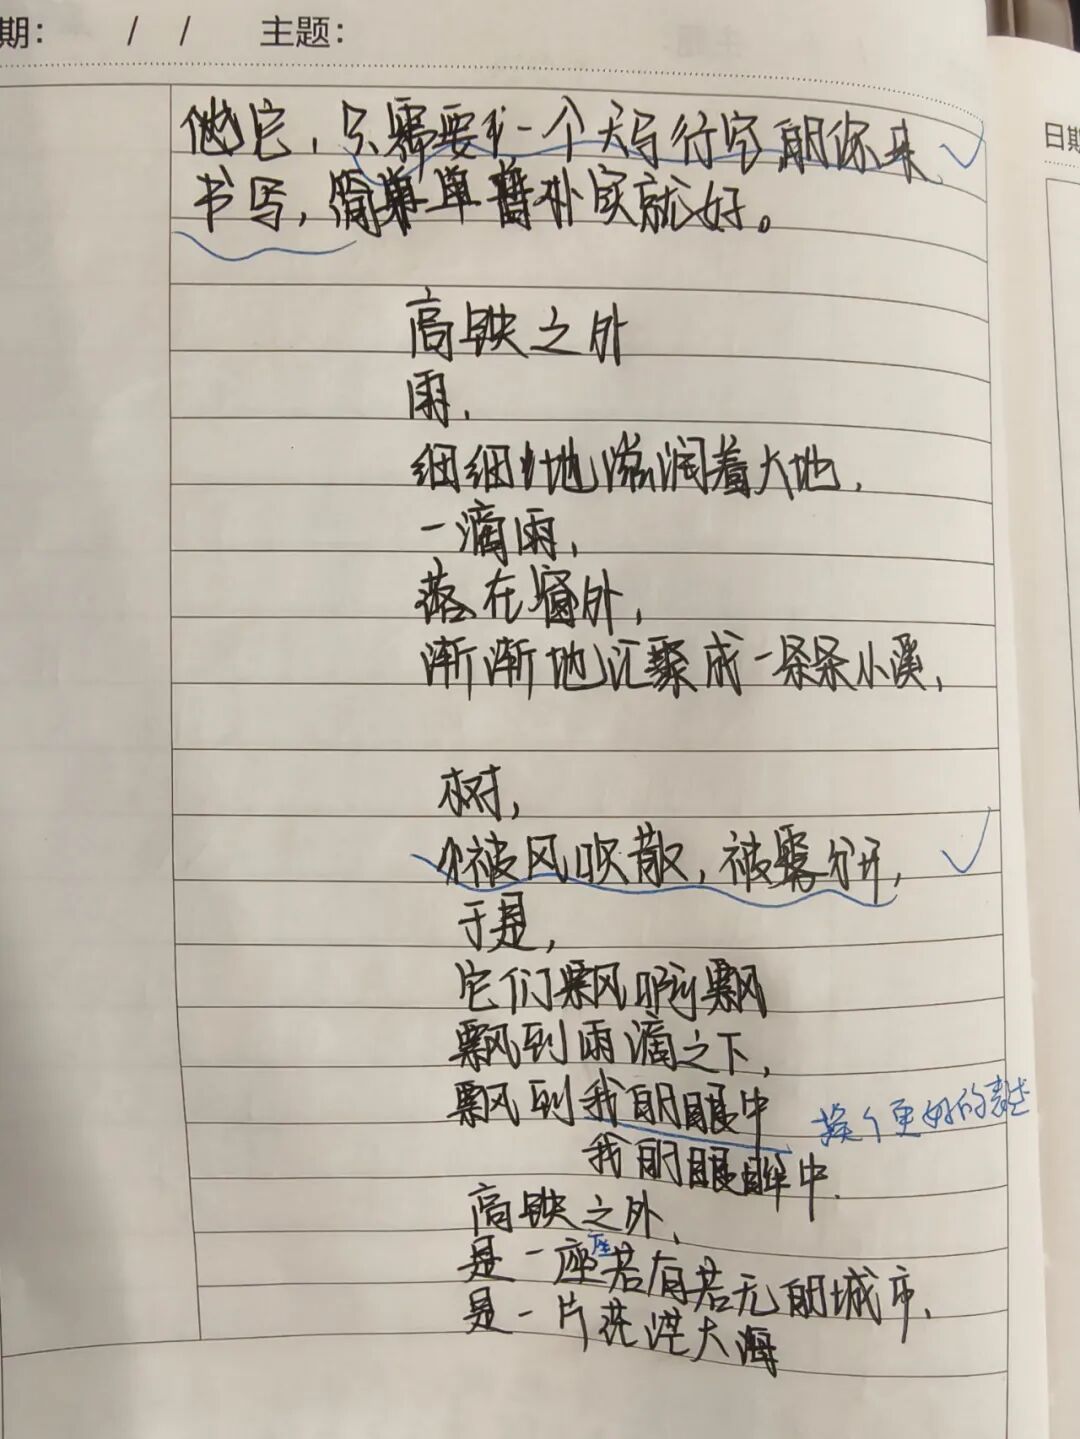 期： / / 主题：
日期
他它，只需要一个天写行字的你来
书写，简单单普朴实就好。
高铁之外
雨，
细细地滋润着大地，
一滴雨，
落在窗外，
渐渐地汇聚成一条条小溪，
树，
被风吹散，被雾分开，
于是，
它们飘啊飘
飘到雨滴之下，
飘到我的眼中
换个更好的表述
我的眼眸中.
高铁之外，
座
是一座若有若无的城市，
是一片茫茫大海